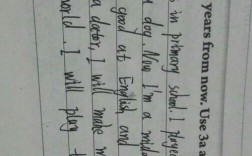 years from now. Use 3a a
, in primary school. I played
a dog. Now I'm a middle
good at English and
a doctor, I will make m
world. I will play